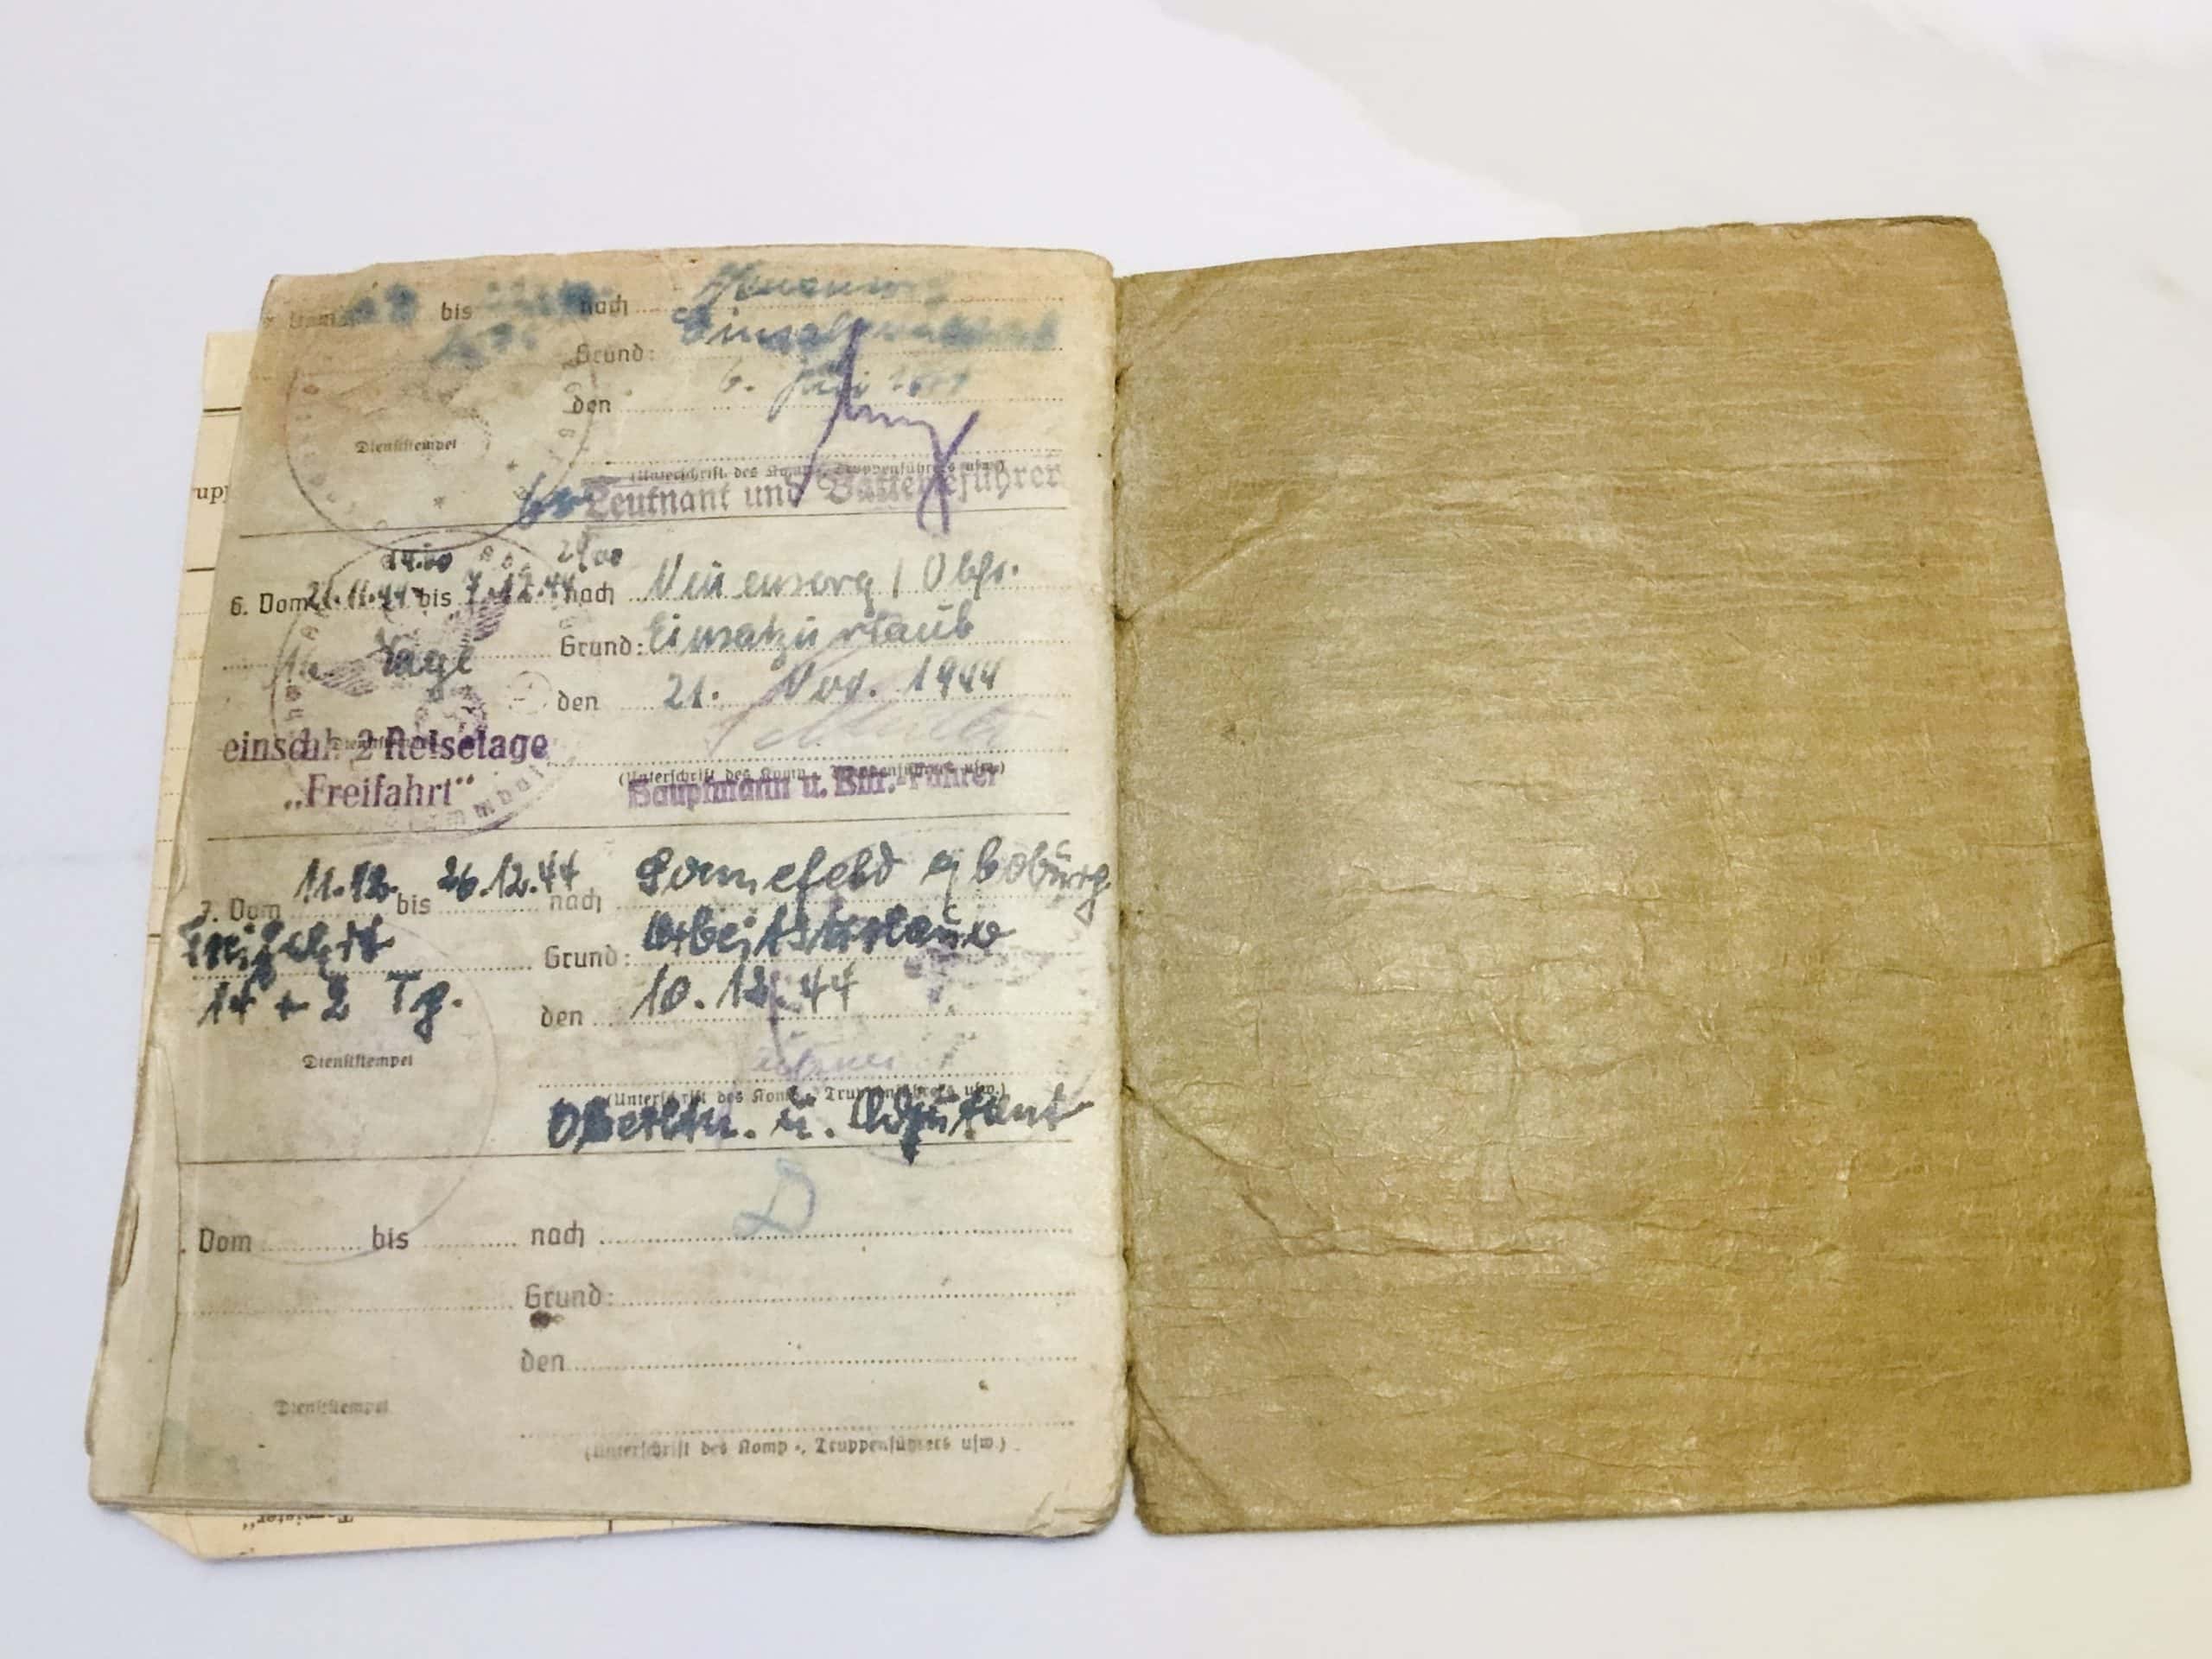 bis nach
Grund:
6. Juli
den
Dienststempel
(Unterschrift des Komp.-, Truppenführers usw.)
Leutnant und Batterieführer
upp
24.00
6. Vom 21.11.44 bis 7.12.44 nach Neuensorg / Obfr.
Tage Grund: Einsatzurlaub
den 21. Nov. 1944
einschl. 2 Reisetage
"Freifahrt"
(Unterschrift des Komp.-, Truppenführers usw.)
Hauptmann u. Bttr.-Führer
7. Vom 11.12. bis 26.12.44 nach Sonnefeld b/ Coburg
Freifahrt Grund: Arbeitsurlaub
14 + 2 Tg. den 10.12.44
Dienststempel
(Unterschrift des Komp.-, Truppenführers usw.)
Oberltn. u. Adjutant
Vom bis nach
Grund:
den
Dienststempel
(Unterschrift des Komp.-, Truppenführers usw.)
Tornister"